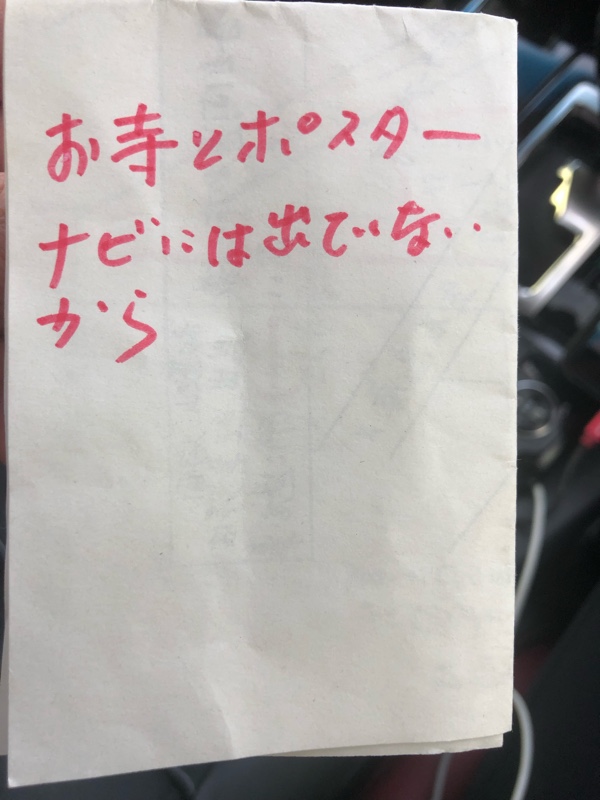 お寺とポスター
ナビには出でない
から